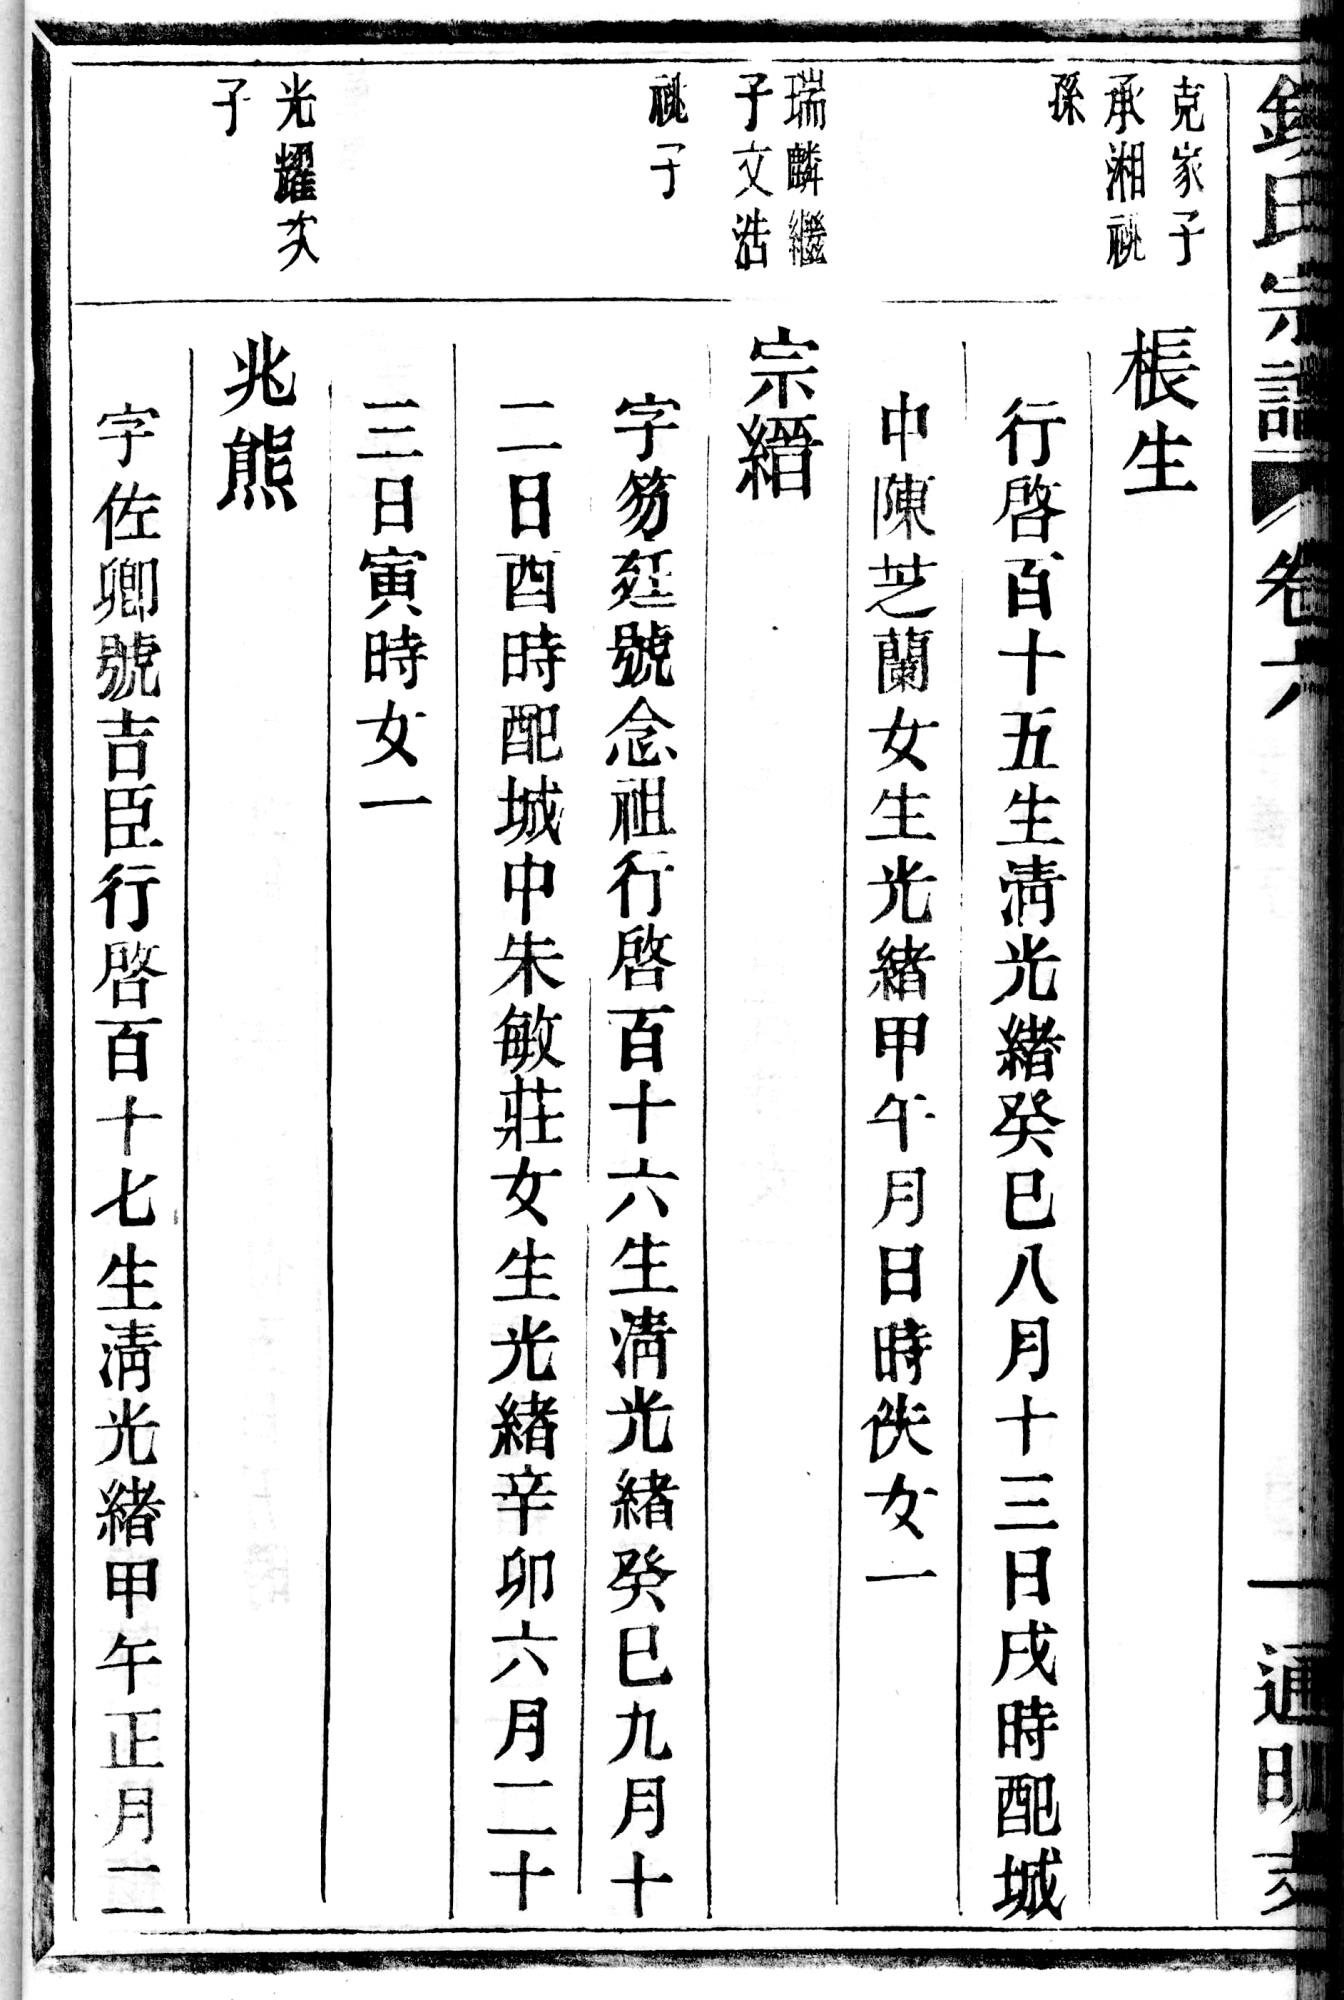 氏宗譜
卷六
一
通明
克家子
承湘祧
孫
棖生
行啓百十五生清光緒癸巳八月十三日戌時配城
中陳芝蘭女生光緒甲午月日時佚女一
瑞麟繼
子文浩
祧子
宗縉
字笏廷號念祖行啓百十六生清光緒癸巳九月十
二日酉時配城中朱敏莊女生光緒辛卯六月二十
三日寅時女一
光耀次
子
兆熊
字佐卿號吉臣行啓百十七生清光緒甲午正月二